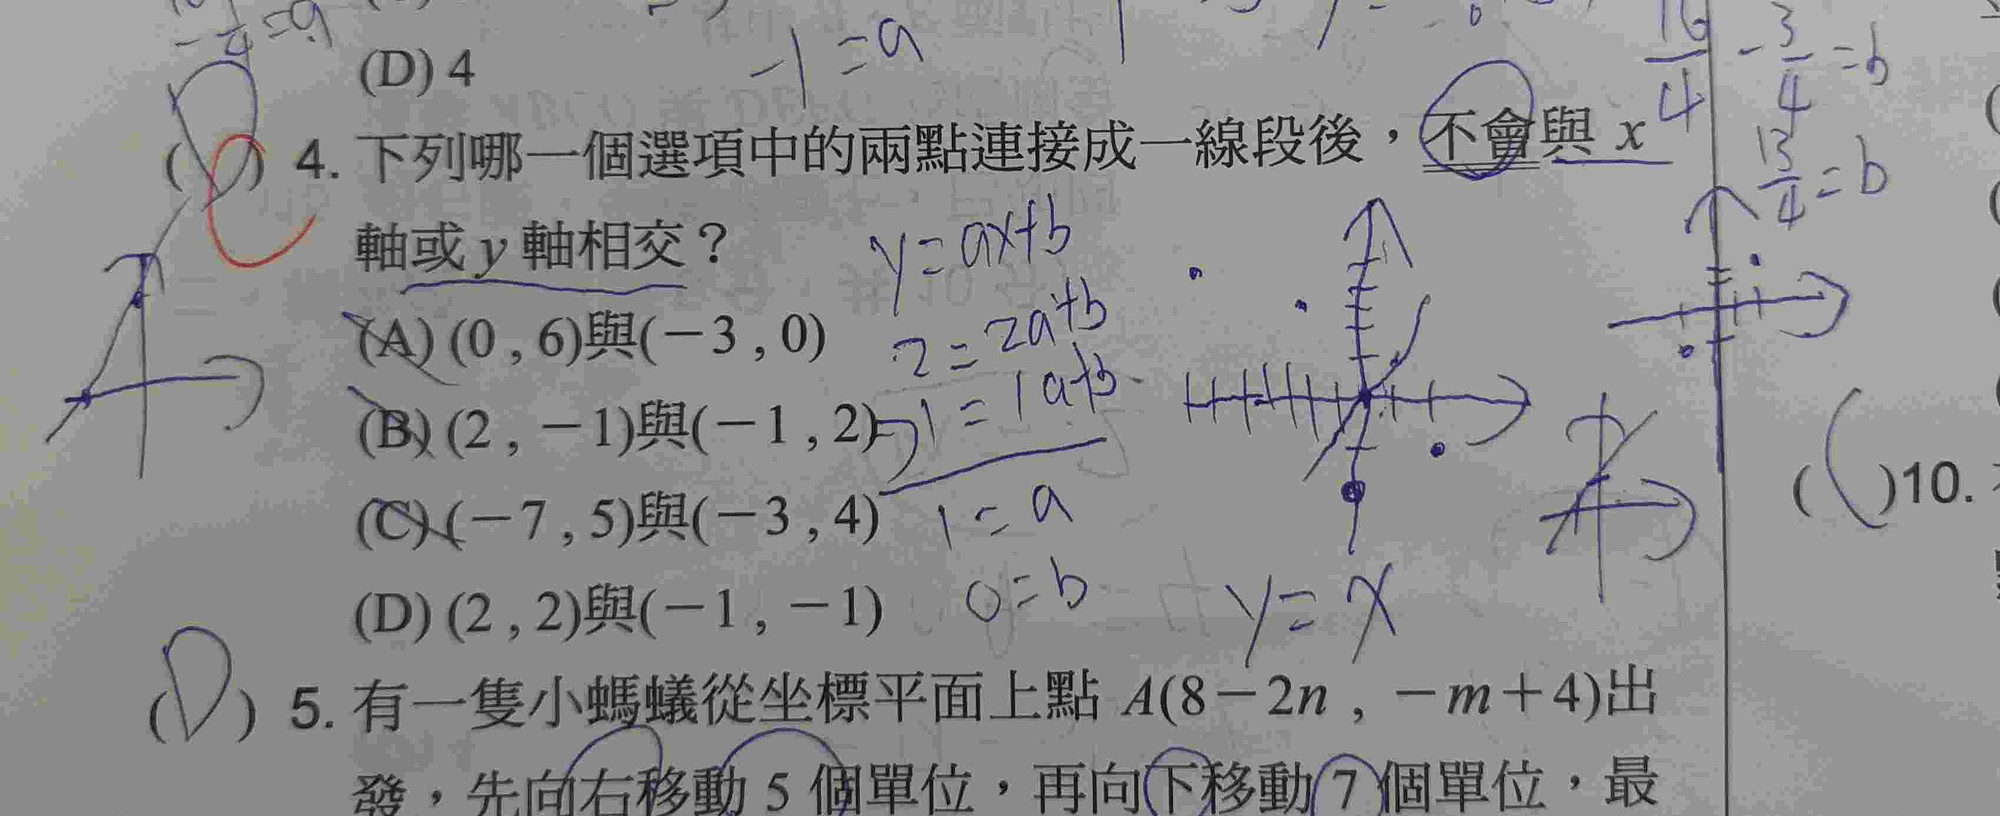 (D) 4
-1=a
16/4 - 3/4 = b
13/4 = b
(D) 4. 下列哪一個選項中的兩點連接成一線段後,不會與 x
軸或 y 軸相交?
y=ax+b
(A) (0 , 6)與(-3 , 0)
2=2a+b
(B) (2 , -1)與(-1 , 2)
-) 1=1a+b
(C) (-7 , 5)與(-3 , 4)
1=a
( )10.
(D) (2 , 2)與(-1 , -1)
0=b
y=x
(D) 5. 有一隻小螞蟻從坐標平面上點 A(8-2n , -m+4)出
發,先向右移動 5 個單位,再向下移動 7 個單位,最